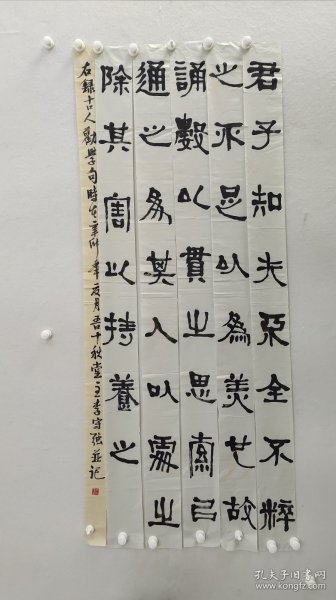 君子知夫不全不粹
之不足以為美也故
誦數以貫之思索以
通之為其人以處之
除其害以持養之
右録古人勸學句時在辛卯年月千秋堂主李守强並記
孔夫子旧书网